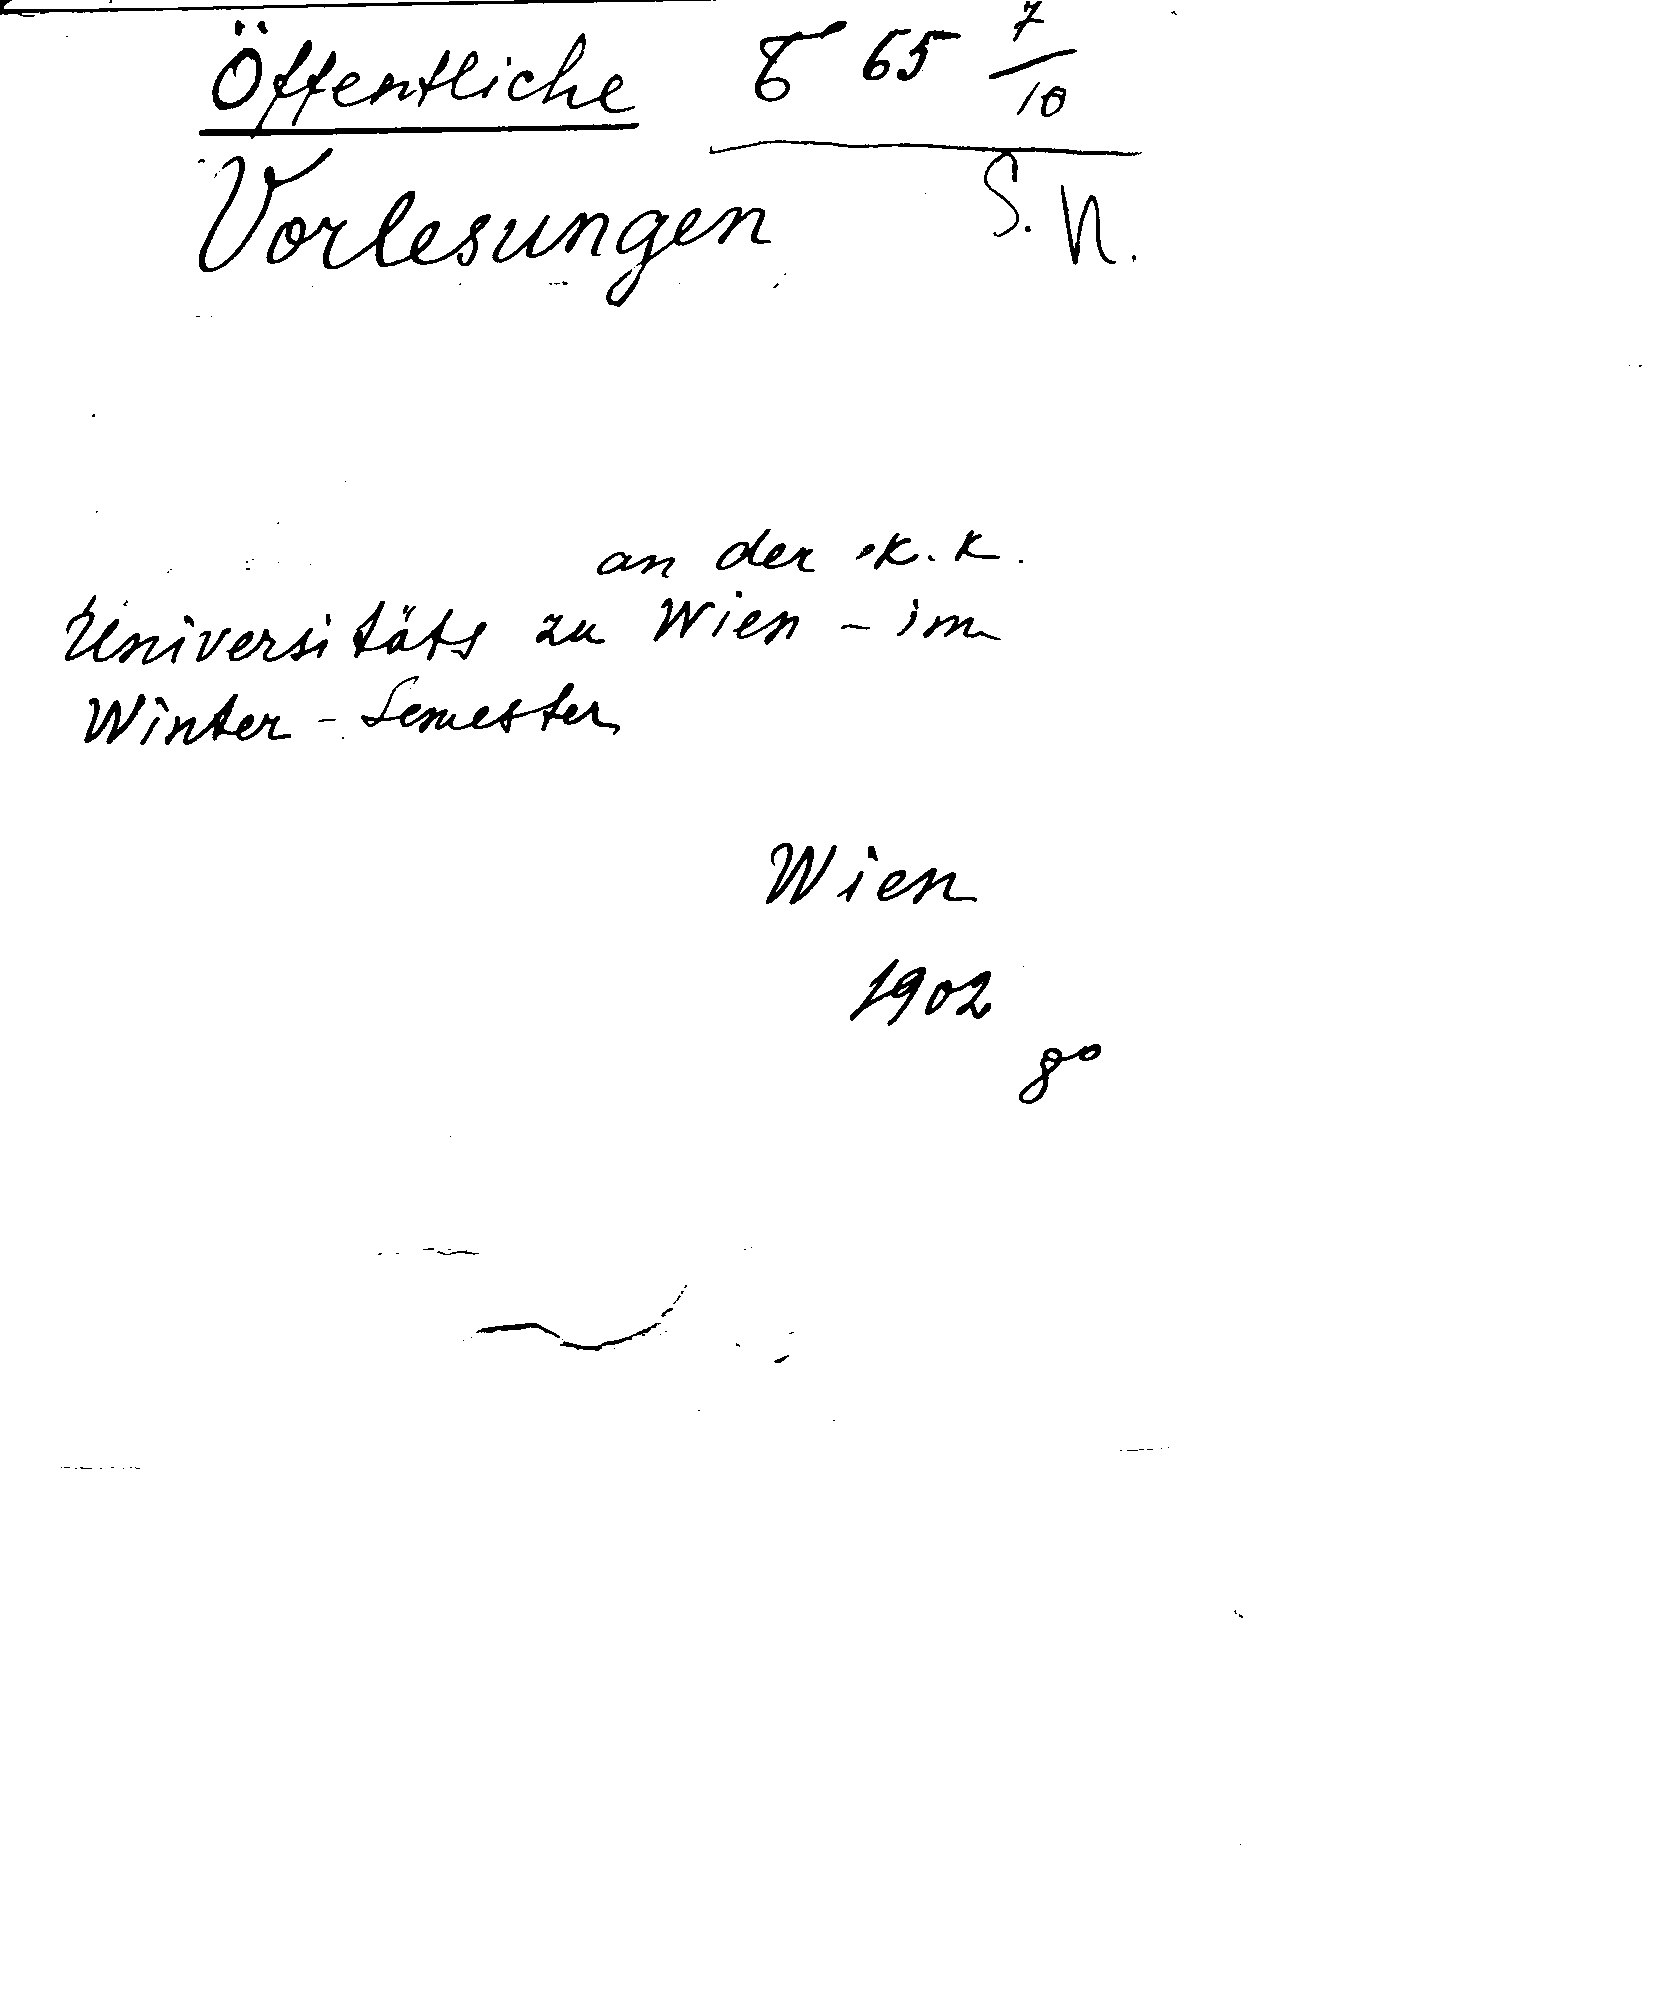 Öffentliche Б 65 7/10
Vorlesungen S. N.
an der k. k.
Universitäts zu Wien – im
Winter – Semester
Wien
1902
8°